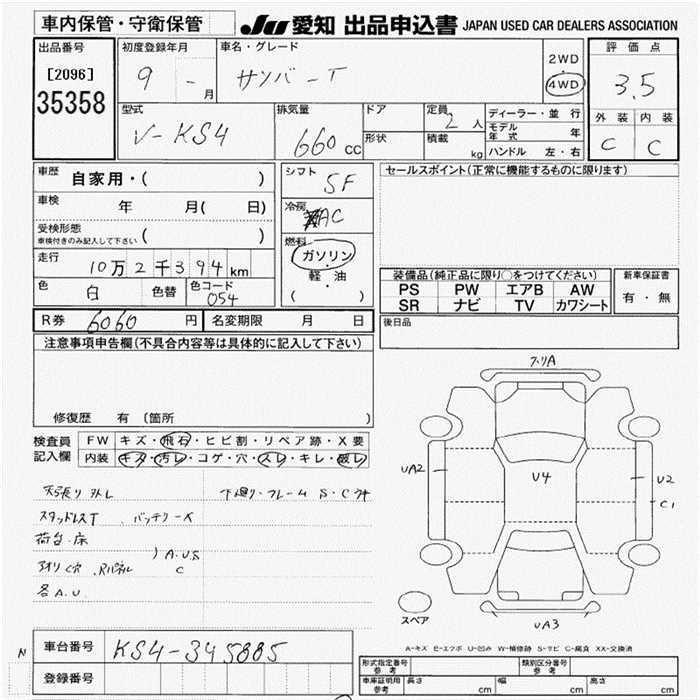 車内保管・守衛保管
JU 愛知 出品申込書 JAPAN USED CAR DEALERS ASSOCIATION
出品番号
[2096]
35358
初度登録年月
9 - 月
車名・グレード
サンバーT
2WD
・
4WD
評価点
3.5
外装 内装
C C
型式
V-KS4
排気量
660 cc
ドア
形状
定員
2 人
積載
kg
ディーラー・並行
モデル年式 年
ハンドル 左・右
車歴 自家用・( )
車検 年 月( 日)
受検形態
車検付きのみ記入して下さい ( )
走行 10万2千394km
色 白 色替 色コード 054
シフト 5F
冷房 AC
燃料
ガソリン
・
軽油
( )
R券 6060 円 名変期限 月 日
セールスポイント(正常に機能するものに限ります)
装備品(純正品に限り○をつけてください)
PS PW エアB AW
SR ナビ TV カワシート
新車保証書
有・無
後日品
注意事項申告欄(不具合内容等は具体的に記入して下さい)
修復歴 有 (箇所 )
検査員記入欄
FW キズ・飛石・ヒビ割・リペア跡・X要
内装 キズ・汚レ・コゲ・穴・スレ・キレ・破レ
天張り外レ 下廻り・フレーム S・C
スタッドレスT バッテリー
荷台・床
) A.U.S
アオリ C穴 Rパネル C
各A.U
フリA
UA2
U4
U2
C1
UA3
スペア
A-キズ E-エクボ U-凹み W-補修跡 S-サビ C-腐食 XX-交換済
N
車台番号 KS4-345885
登録番号
形式指定番号 参考
類別区分番号 参考
車庫証明用 参考 長さ cm 幅 cm 高さ cm